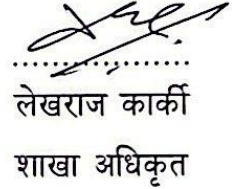 लेखराज कार्की
शाखा अधिकृत